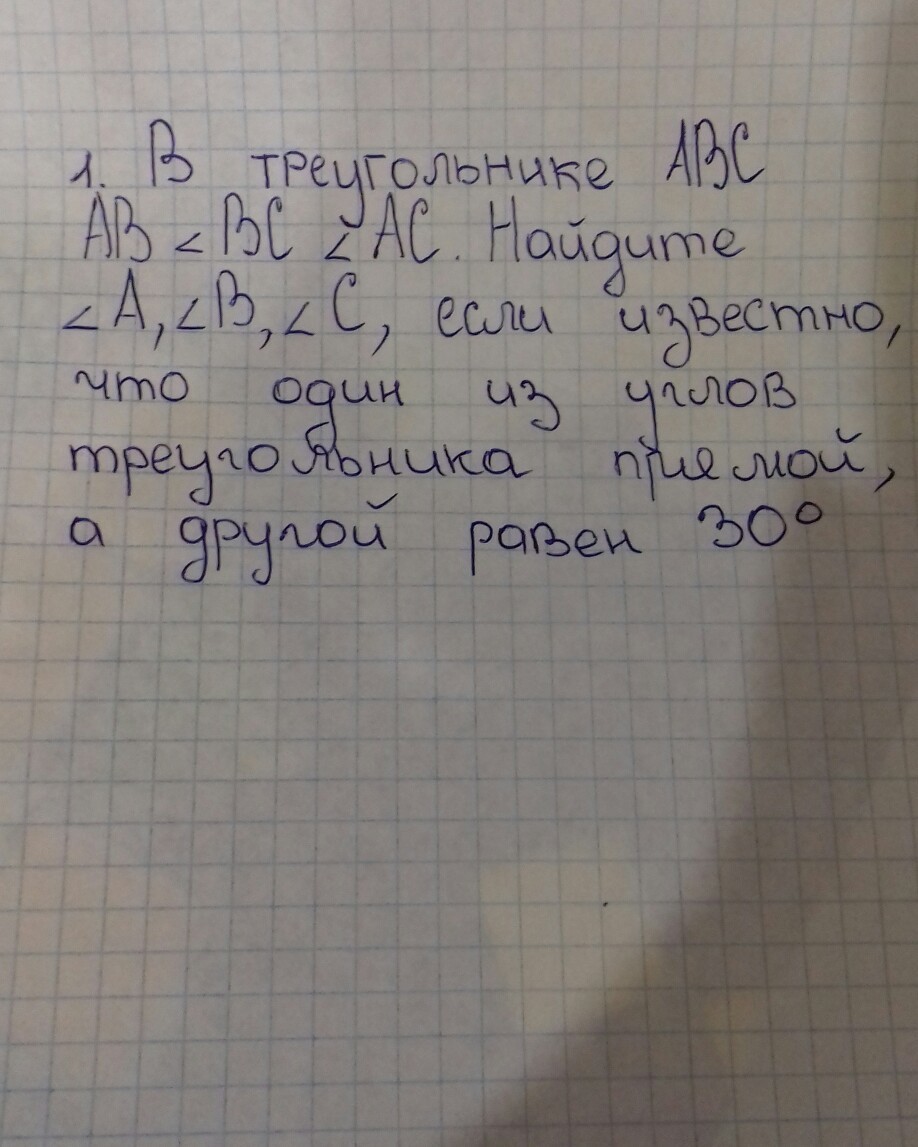 1. В треугольнике ABC
AB < BC < AC. Найдите
∠A, ∠B, ∠C, если известно,
что один из углов
треугольника прямой,
а другой равен 30°